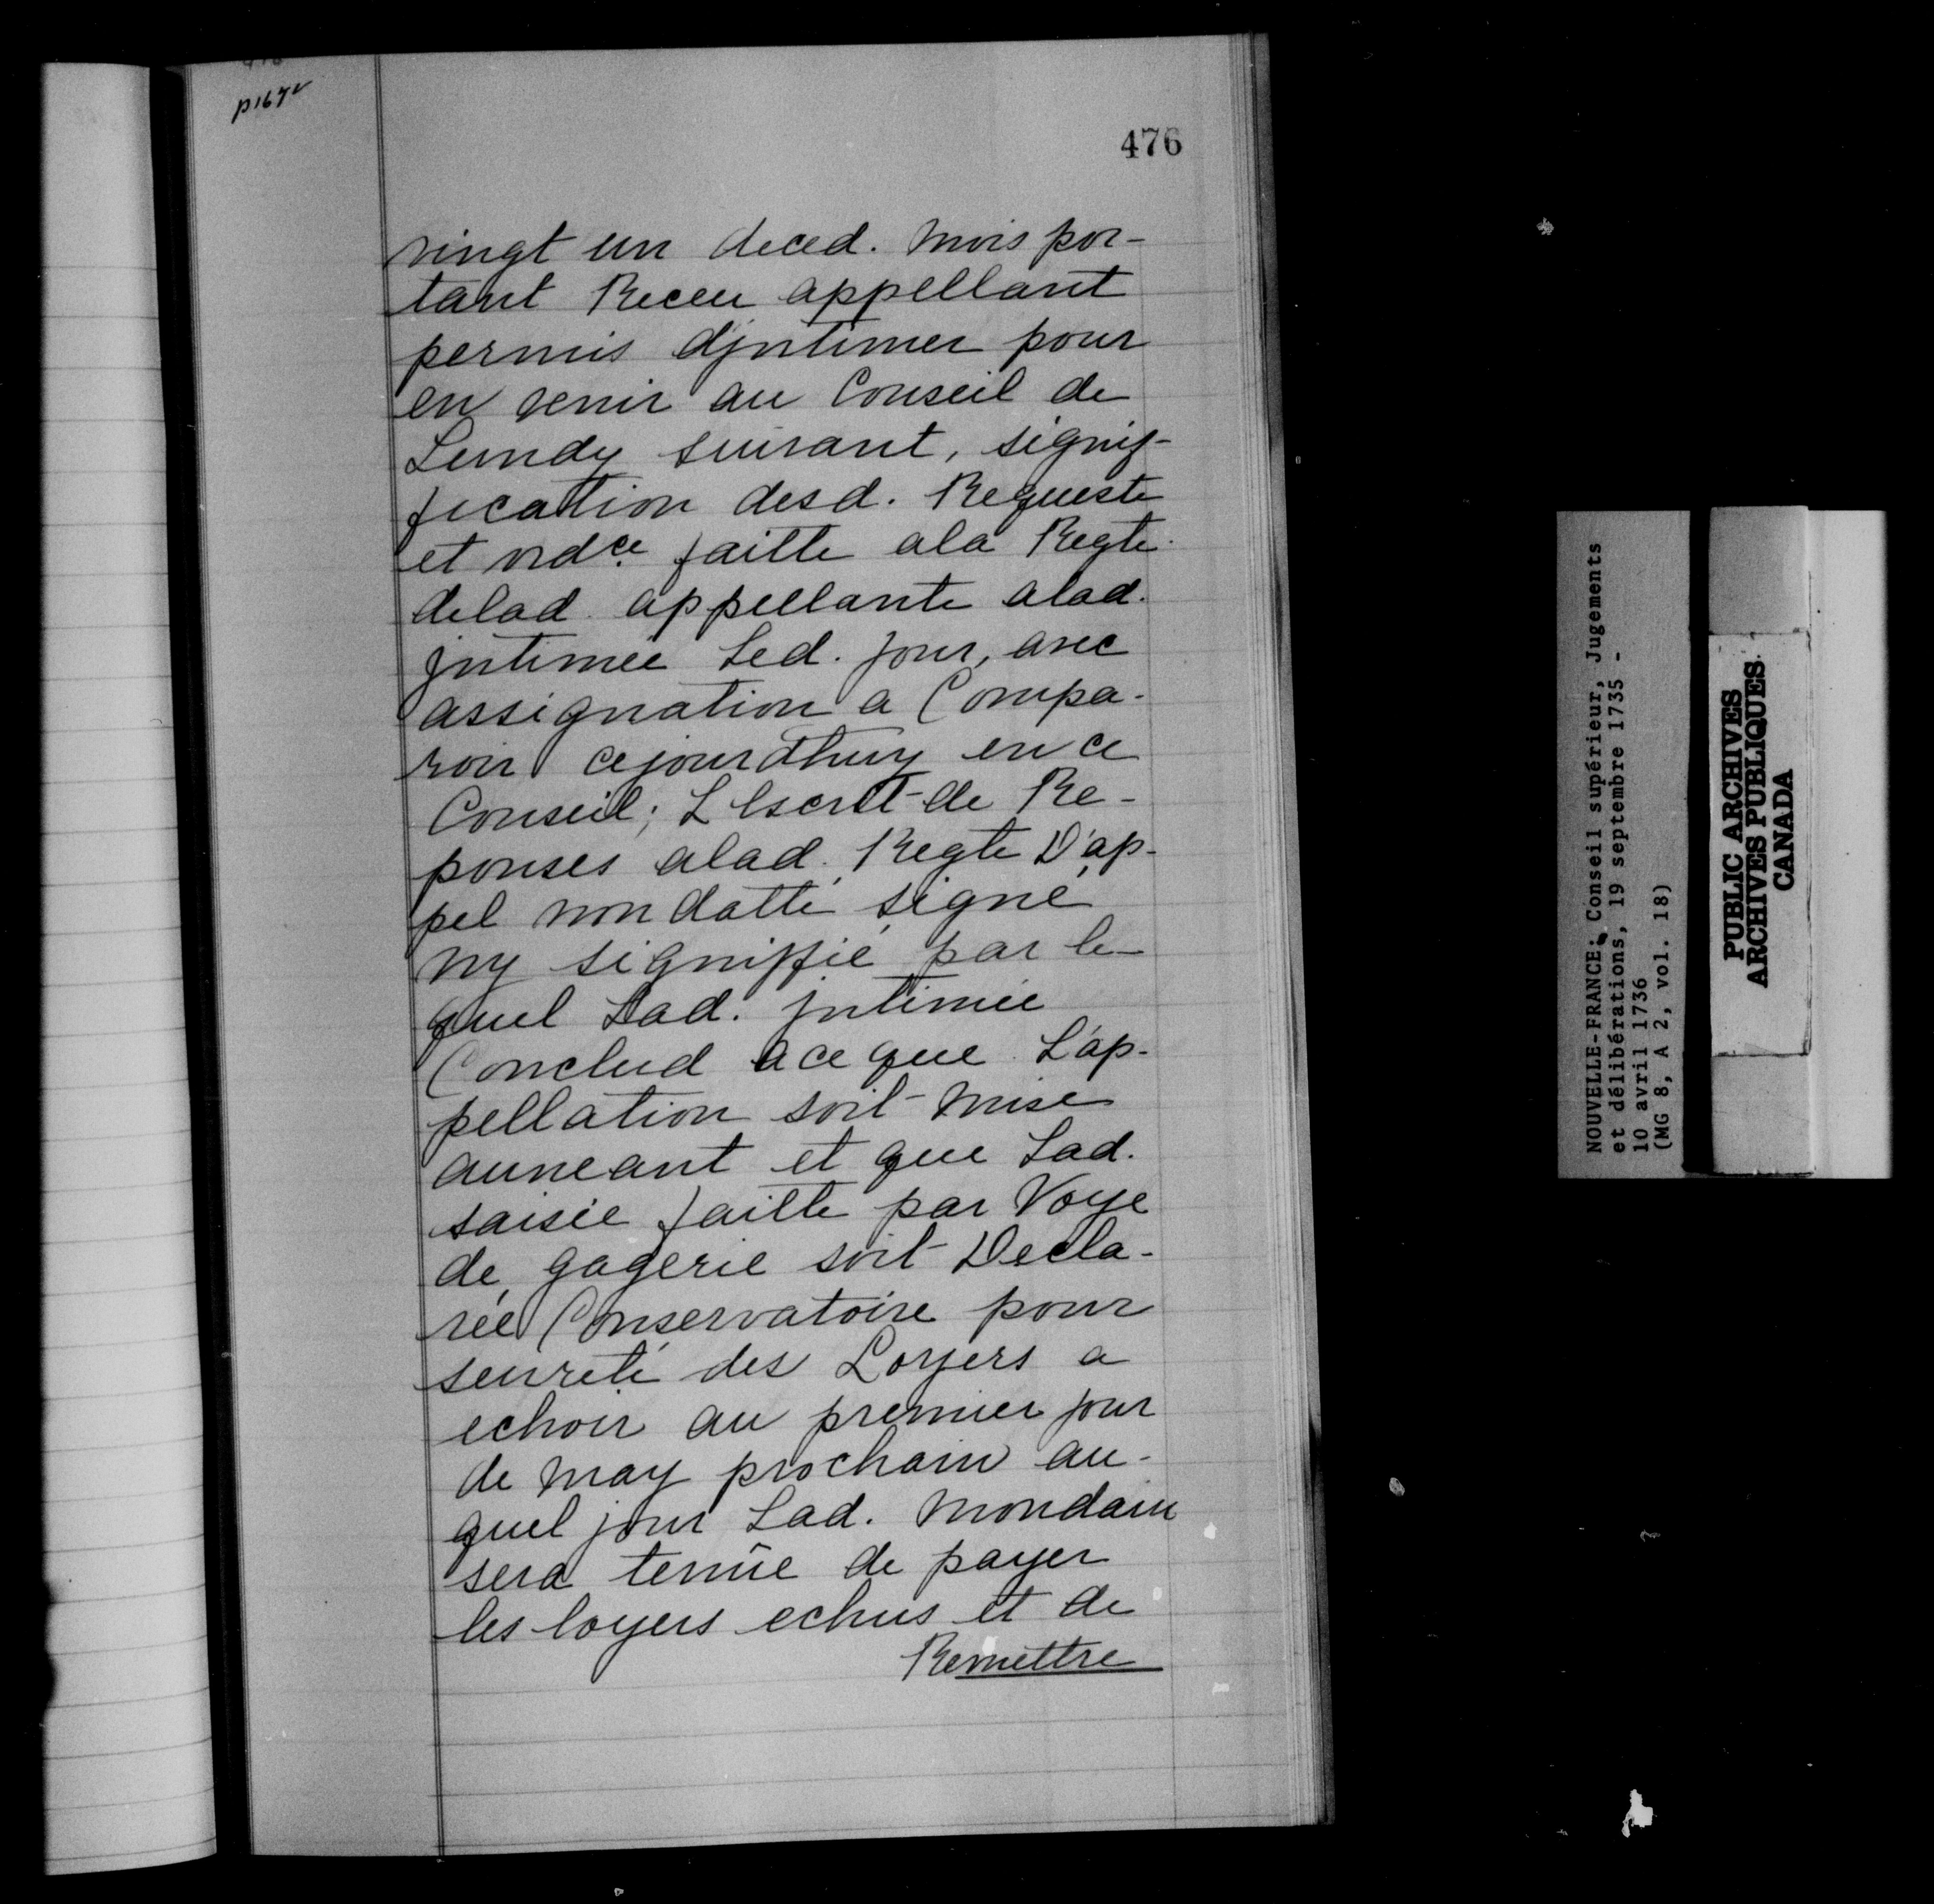 p167v
476
vingt un deced. mois por-
tant Receu appellant
permis d'jntimer pour
en venir au Conseil de
Lundy suivant, signif-
fication desd. Requeste
et ordce. faitte ala Reqte.
delad. appellante alad.
jntimée Led. jour, avec
assignation a Compa-
roir cejourdhuy en ce
Conseil; L Escrit de Re-
ponses alad. Reqte D'ap-
pel non datté, signé
ny signiffié, par le-
quel Lad. jntimée
Conclud a ce que L'ap-
pellation soit mise
auneant et que Lad.
saisie faitte par Voye
de gagerie soit Decla-
rée Conservatoire pour
seureté des Loyers a
echoir au premier jour
de may prochain au-
quel jour Lad. Mondain
sera tenüe de payer
les loyers echus et de
Remettre
NOUVELLE-FRANCE: Conseil supérieur, Jugements
et délibérations, 19 septembre 1735 -
10 avril 1736
(MG 8, A 2, vol. 18)
PUBLIC ARCHIVES
ARCHIVES PUBLIQUES
CANADA